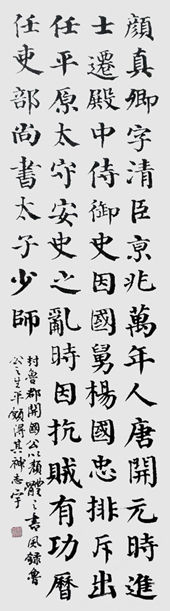 顏真卿字清臣京兆萬年人唐開元時進
士遷殿中侍御史因國舅楊國忠排斥出
任平原太守安史之亂時因抗賊有功曆
任吏部尚書太子少師
封魯郡開國公以顏體之書風錄魯
公之生平頗得其神志宇